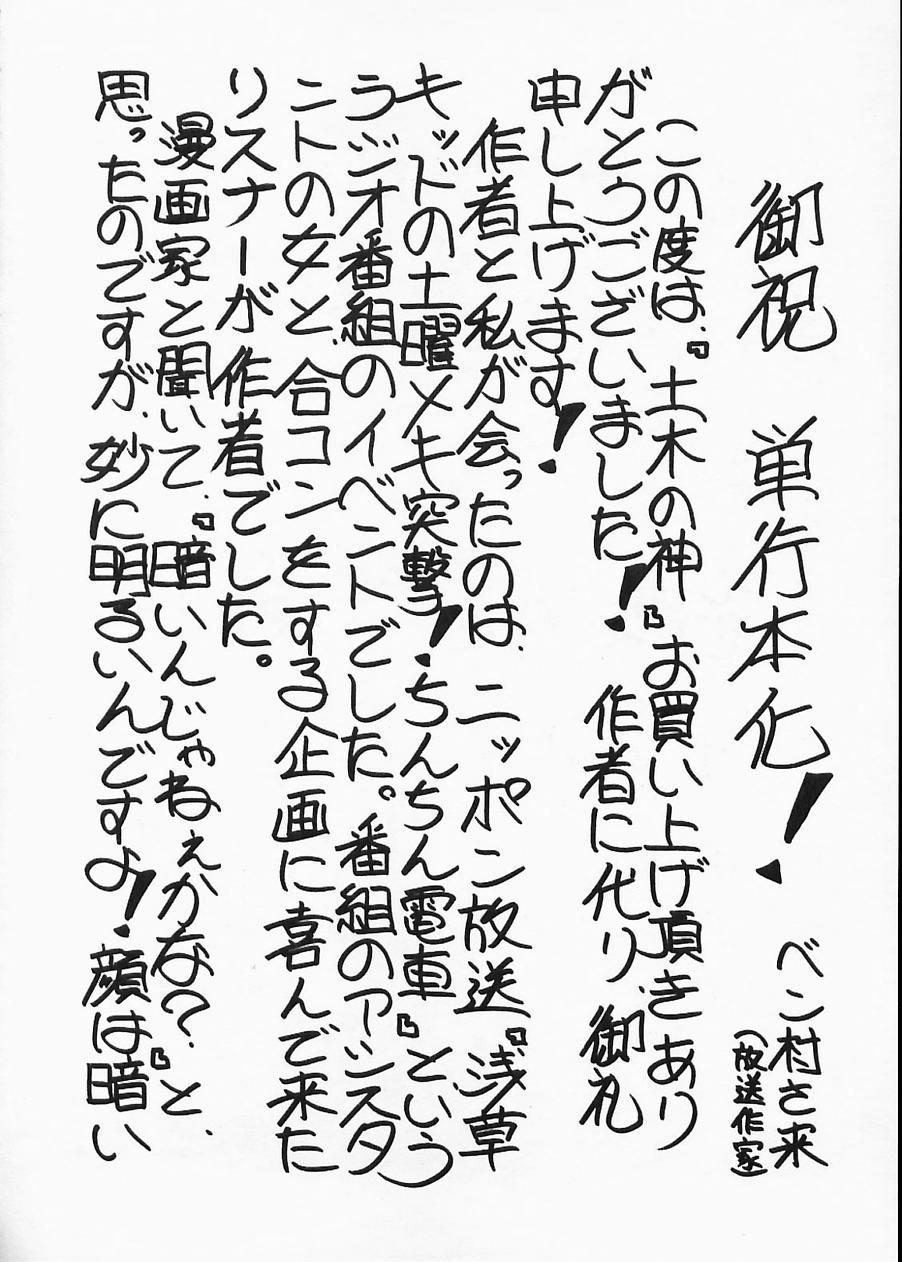 御祝　単行本化！
ベン村さ来
（放送作家）
この度は、『土木の神』お買い上げ頂きあり
がとうございました！作者に代り、御礼
申し上げます！
作者と私が会ったのは、ニッポン放送『浅草
キッドの土曜メキ突撃！ちんちん電車』という
ラジオ番組のイベントでした。番組のアシスタ
ントの女と、合コンをする企画に喜んで来た
リスナーが作者でした。
漫画家と聞いて、『暗いんじゃねぇかな？』と、
思ったのですが、妙に明るいんですよ！顔は暗い